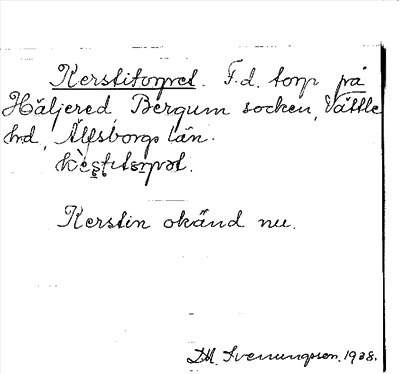 Kerstitorpet. F.d. torp på
Häljered, Bergum socken, Vättle
hd, Älfsborgs län.
Kerstin okänd nu.
DM. Svenungsson. 1938.